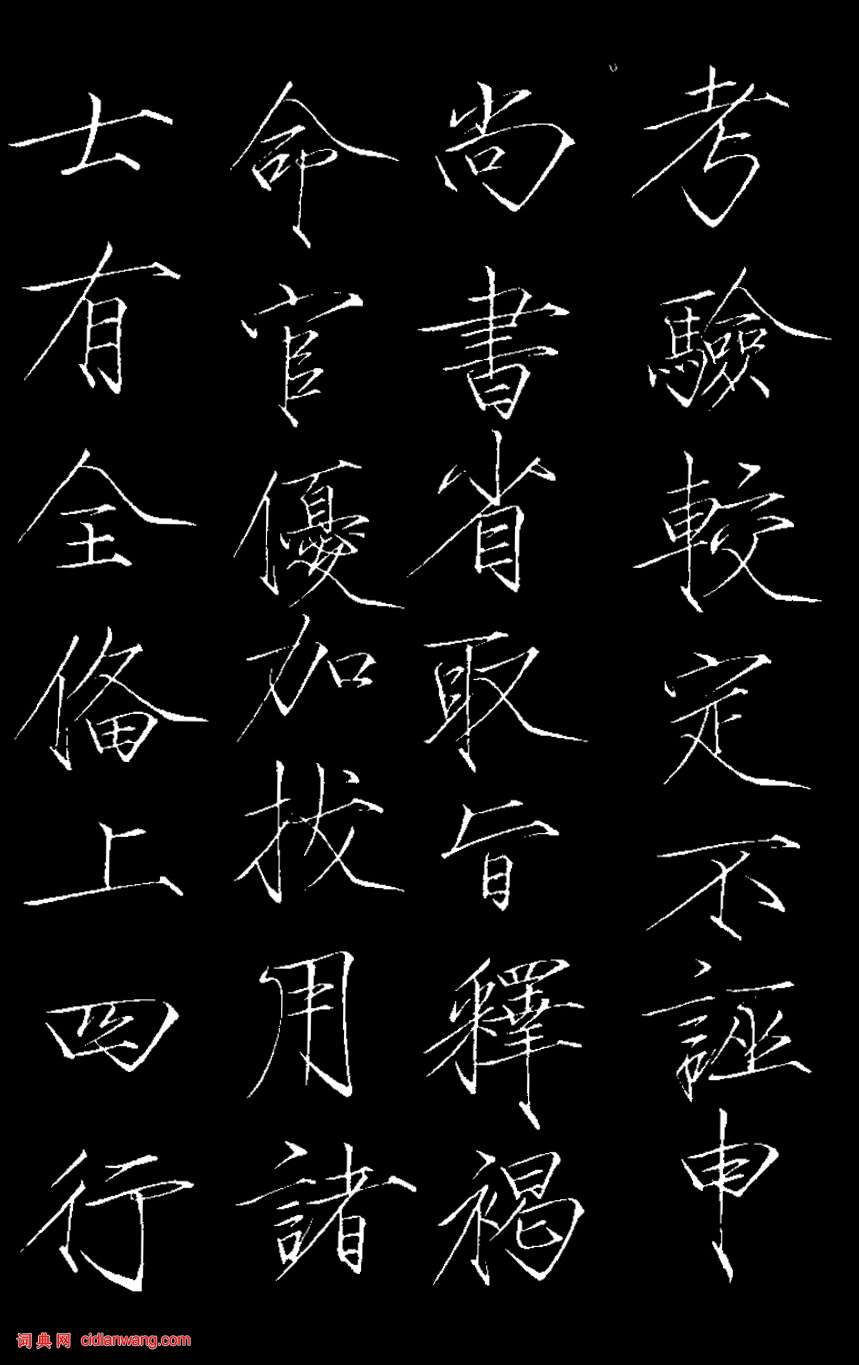 考驗較定不誣申
尚書省取旨釋褐
命官優加拔用諸
士有全備上四行
词典网 cidianwang.com